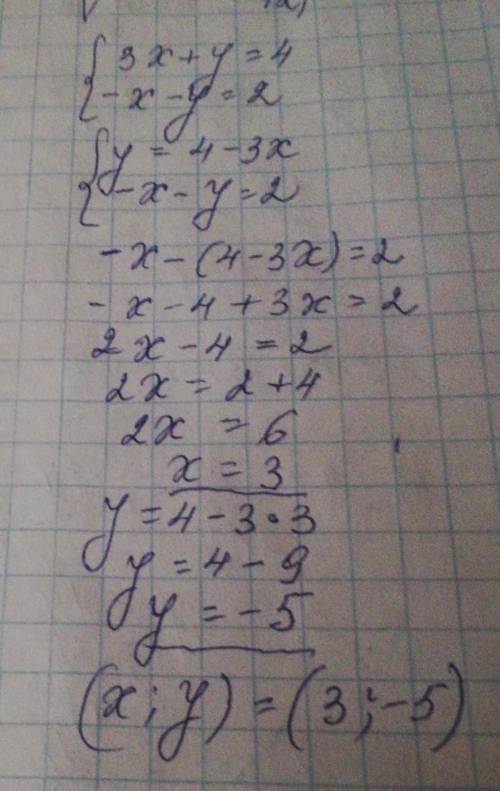 3x+y=4
-x-y=2
y = 4-3x
-x-y=2
-x-(4-3x)=2
-x-4+3x=2
2x-4=2
2x=2+4
2x=6
x=3
y=4-3·3
y=4-9
y=-5
(x;y)=(3;-5)